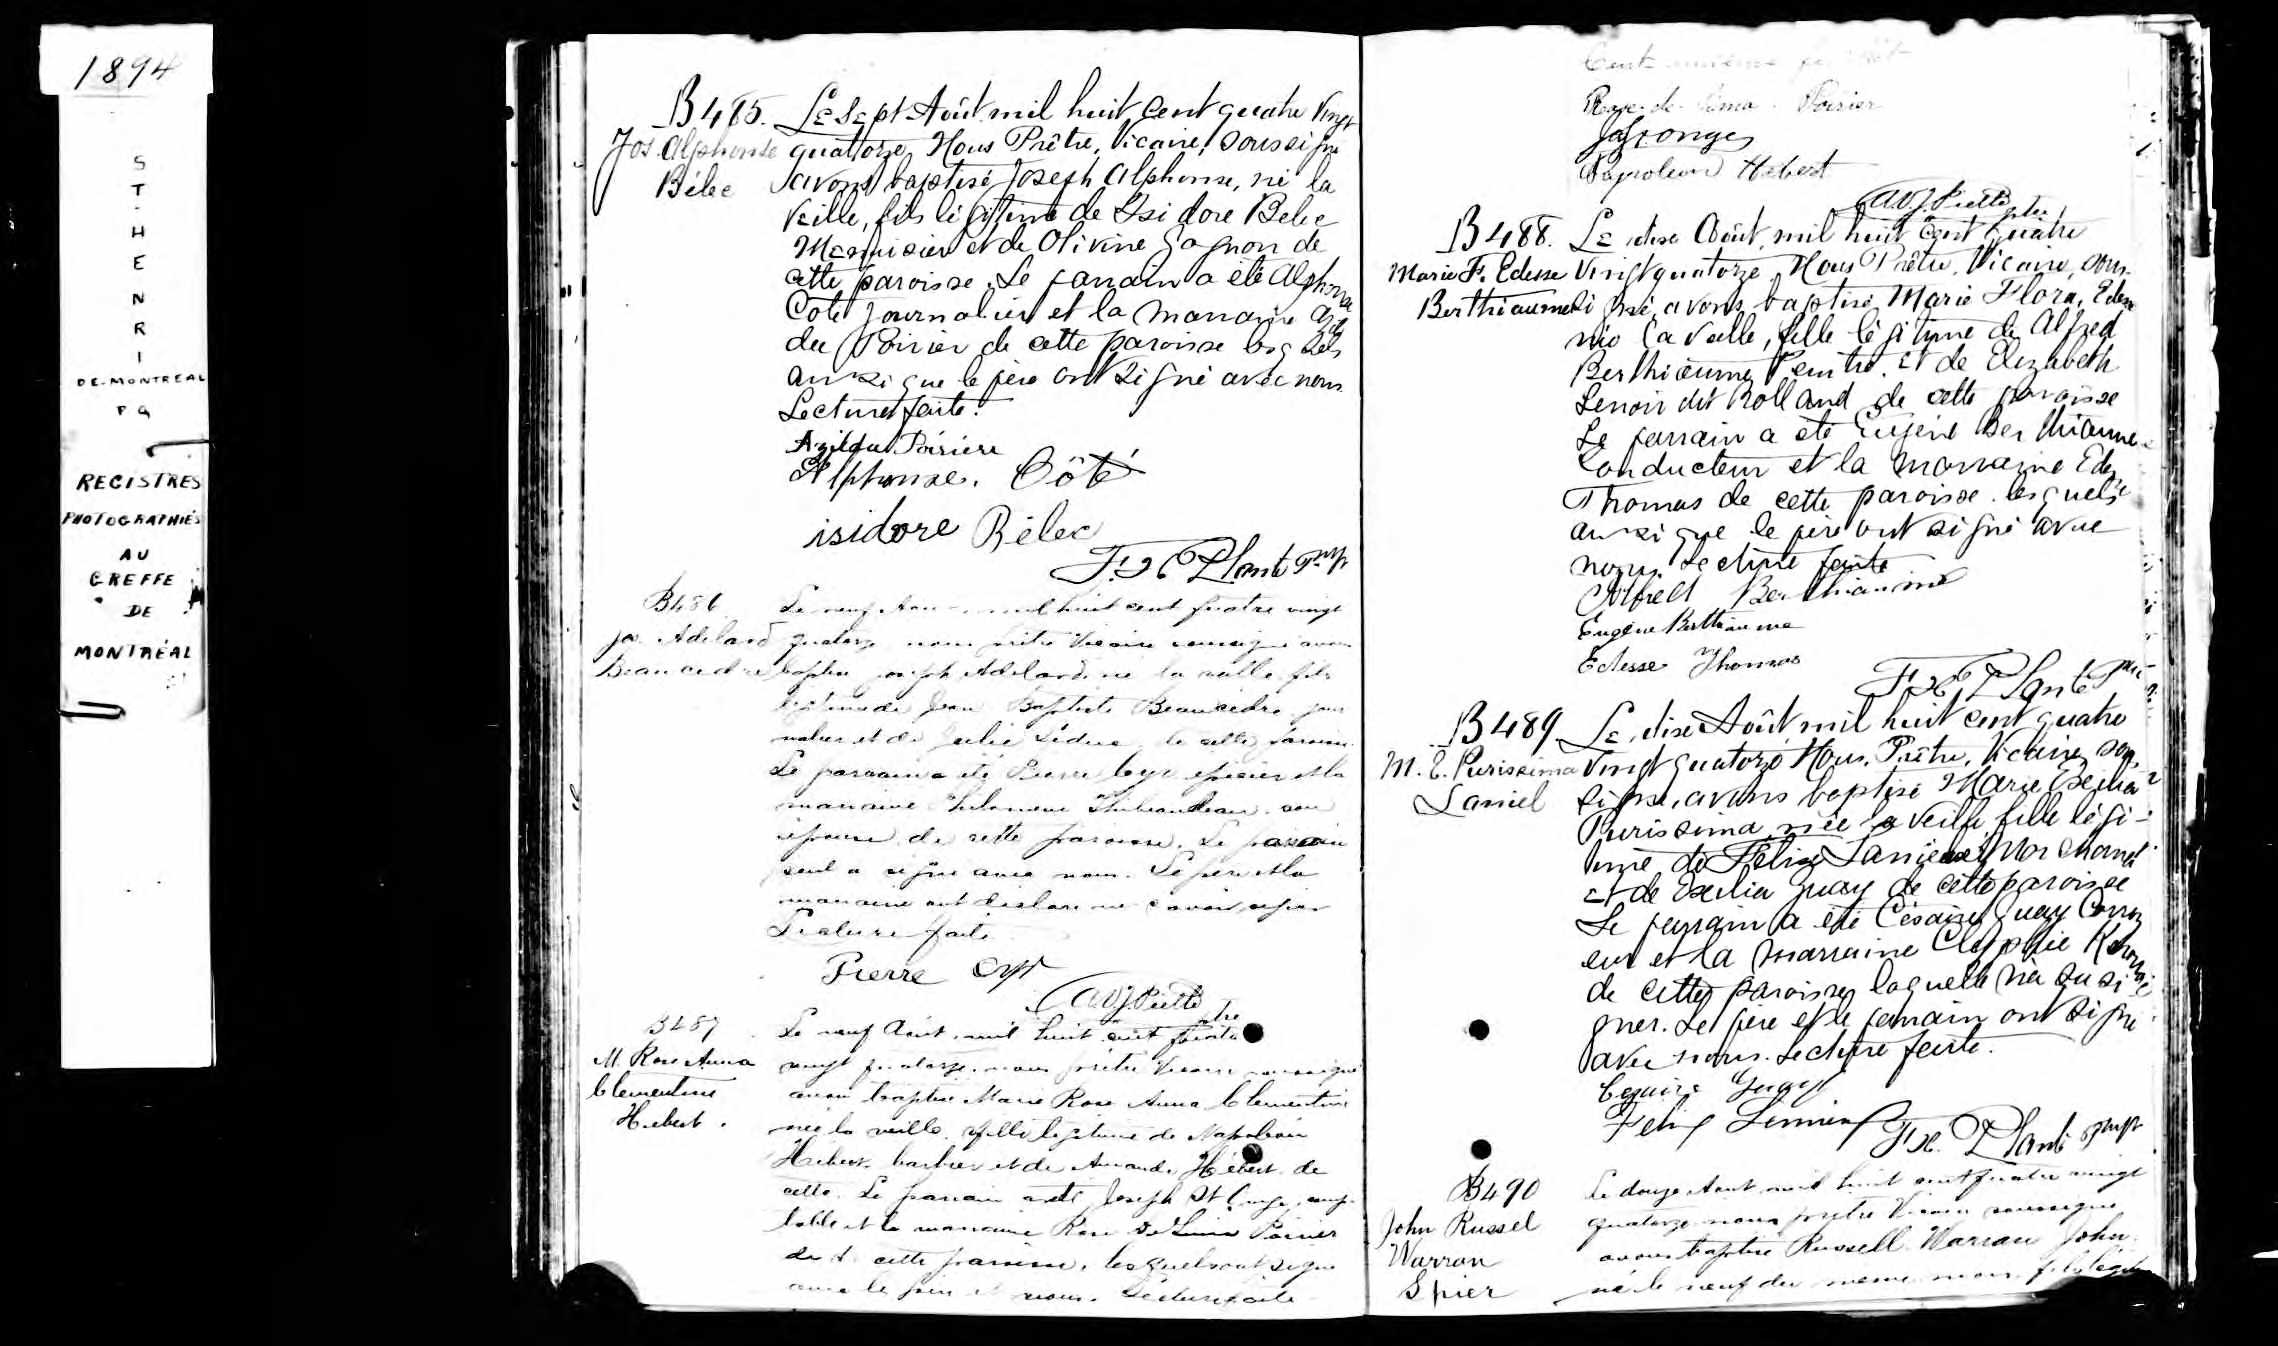 1894
ST-HENRI
DE-MONTREAL
P Q
REGISTRES
PHOTOGRAPHIÉS
AU
GREFFE
DE
MONTRÉAL
B 485. Le sept Août mil huit cent quatre vingt
Jos. Alphonse quatorze Nous Prêtre, Vicaire, soussigné
Bélec avons baptisé Joseph Alphonse, né la
veille, fils légitime de Isidore Belec
Menuisier et de Olivine Gagnon de
cette paroisse. Le parrain a été Alphonse
Coté Journalier et la marraine Azil
da Poirier de cette paroisse lesquels
ainsi que le père ont signé avec nous.
Lecture faite.
Azilda Poiriere
Alphonse. Côté
isidore Bélec
F. X Plante Ptre
B486 Le neuf Aout mil huit cent quatre vingt
Jos. Adelard quatorze nous prêtre Vicaire soussigné avons
Beaucedre baptisé joseph Adelard né la veille fils
légitime de Jean Baptiste Beaucèdre jour
nalier et de Julie Léduc de cette paroisse.
Le parrain a été Pierre Cyr épicier et la
marraine Philomene Thibaudeau son
épouse de cette paroisse. Le parrain
seul a signé avec nous. Le père et la
marraine ont déclaré ne savoir signer
Lecture faite
Pierre Cyr
B487 Le neuf Août mil huit cent quatre
M. Rose Anna vingt quatorze nous prêtre Vicaire soussigné
Clementine avons baptisé Marie Rose Anna Clementine
Hebert. née la veille fille légitime de Napoléon
Hébert barbier et de Amanda Hébert de
cette. Le parrain a été Joseph St Onge, comp
table et la marraine Rose de Lima Poirier
de cette paroisse, lesquels ont signé
avec le père et nous. Lecture faite
Rose-de-Lima Poirier
Napoleon Hébert
B 488. Le dix Août mil huit cent quatre
Marie F. Edesse vingt quatorze Nous Prêtre, Vicaire, sous-
Berthiaume signé, avons baptisé Marie Flora, Edesse
née la veille, fille légitime de Alfred
Berthiaume Peintre. et de Elizabeth
Lenoir dit Rolland de cette paroisse
Le parrain a été Eugène Berthiaume
Conducteur et la marraine Edesse
Thomas de cette paroisse. lesquels
ainsi que le père ont signé avec
nous. Lecture faite
Alfred Berthiaume
Eugène Berthiaume
Edesse Thomas
F X Plante Ptre
B 489 Le dix Août mil huit cent quatre
M. E. Purissima vingt quatorze Nous, Prêtre, Vicaire, sous
Laniel signé, avons baptisé Marie Exelia
Purissima née la veille fille légi-
time de Félix Laniel Marchand
et de Exelia Guay de cette paroisse
Le parrain a été Césaire Guay
eur et la marraine
de cette paroisse laquelle n'a su si
gner. Le père et le parrain ont signé
avec nous. Lecture faite.
Cesaire Guay
F. X. Plante Ptre
B490 Le douze Aout mil huit cent quatre vingt
John Russel quatorze nous prêtre Vicaire soussigné
Warran avons baptisé Russell Warran John
Spier né le neuf du meme mois, fils légit